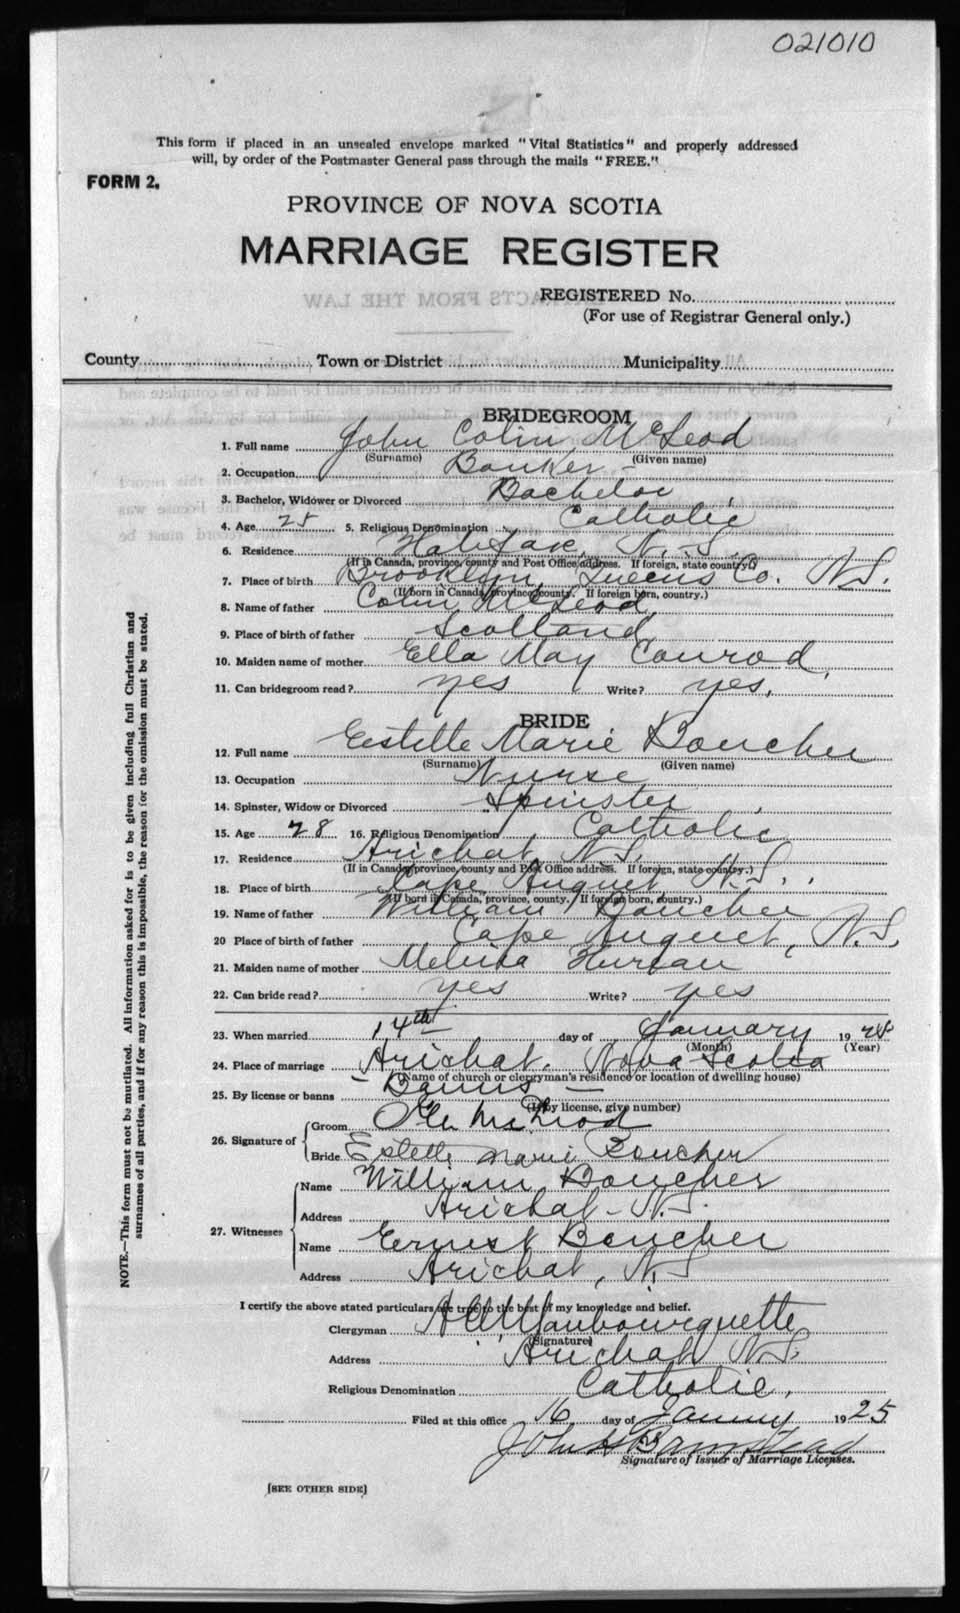 021010
This form if placed in an unsealed envelope marked "Vital Statistics" and properly addressed
will, by order of the Postmaster General pass through the mails "FREE."
FORM 2.
PROVINCE OF NOVA SCOTIA
MARRIAGE REGISTER
REGISTERED No.
(For use of Registrar General only.)
County Town or District Municipality
BRIDEGROOM
1. Full name John Colin McLeod
(Surname) (Given name)
2. Occupation Banker
3. Bachelor, Widower or Divorced Bachelor
4. Age 25 5. Religious Denomination Catholic
6. Residence Halifax, N.S.
(If in Canada, province, county and Post Office address. If foreign, state country.)
7. Place of birth Brooklyn, Queens Co. N.S.
(If born in Canada, province, county. If foreign born, country.)
8. Name of father Colin McLeod
9. Place of birth of father Scotland
10. Maiden name of mother Ella May Conrod
11. Can bridegroom read? yes Write? yes,
BRIDE
12. Full name Estelle Marie Boucher
(Surname) (Given name)
13. Occupation Nurse
14. Spinster, Widow or Divorced Spinster
15. Age 28 16. Religious Denomination Catholic
17. Residence Arichat, N.S.
(If in Canada, province, county and Post Office address. If foreign, state country.)
18. Place of birth Cape Auguet, N.S.
(If born in Canada, province, county. If foreign born, country.)
19. Name of father William Boucher
20 Place of birth of father Cape Auguet, N.S.
21. Maiden name of mother
22. Can bride read? yes Write? yes
23. When married 14th day of January 19
(Month) (Year)
24. Place of marriage Arichat, Nova Scotia
(Name of church or clergyman's residence or location of dwelling house)
25. By license or banns - Banns -
(If by license, give number)
26. Signature of Groom McLeod
Bride Estelle Marie Boucher
27. Witnesses Name William Boucher
Address Arichat - N.S.
Name Ernest Boucher
Address Arichat, N.S
I certify the above stated particulars are true to the best of my knowledge and belief.
Clergyman
(Signature)
Address Arichat N.S.
Religious Denomination Catholic.
Filed at this office 16 day of January 1925
Signature of Issuer of Marriage Licenses.
[SEE OTHER SIDE]
NOTE.—This form must not be mutilated. All information asked for is to be given including full Christian and
surnames of all parties, and if for any reason this is impossible, the reason for the omission must be stated.